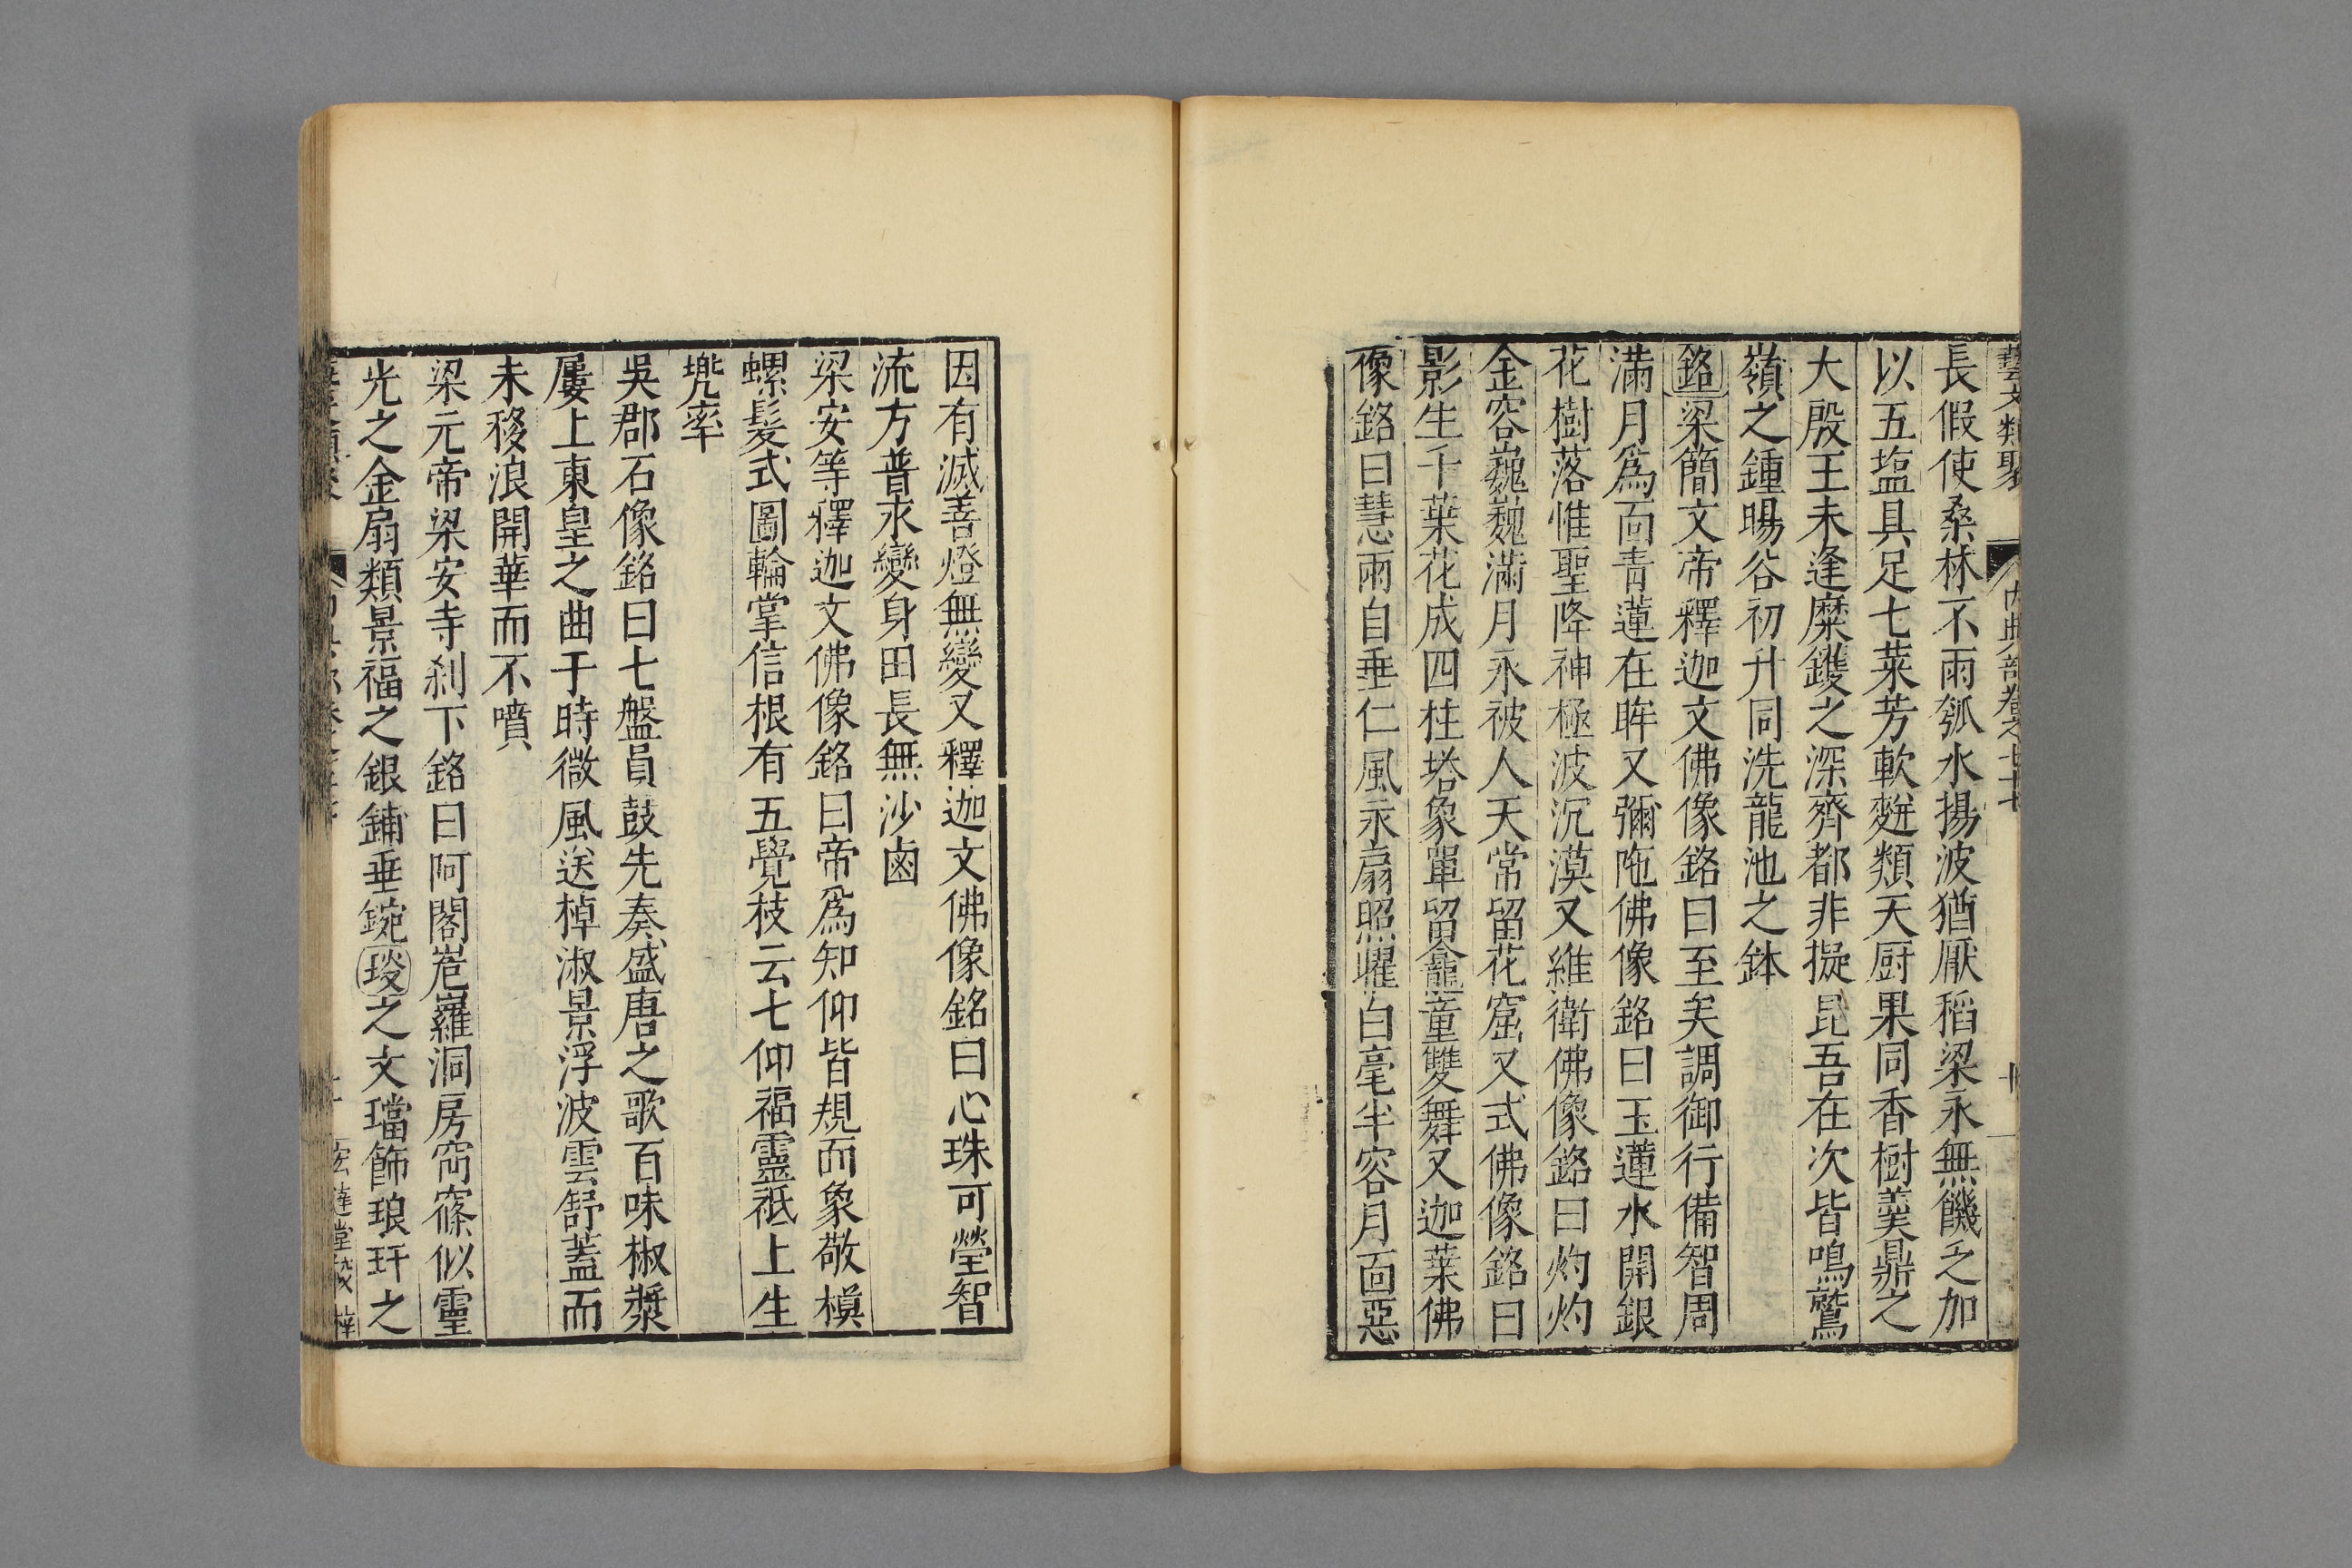 藝文類聚 內典部卷之七十七
長假使桑林不雨瓠水揚波猶厭稻粱永無饑之加
以五塩具足七菜芳軟麨類天厨果同香樹羙鼎之
大殷王未逢糜鑊之深齊都非擬昆吾在次皆鳴鷲
嶺之鍾暘谷初升同洗龍池之鉢
銘梁簡文帝釋迦文佛像銘曰至矣調御行備智周
滿月爲面青蓮在眸又彌陁佛像銘曰玉蓮水開銀
花樹落惟聖降神極波沉漠又維衛佛像銘曰灼灼
金容巍巍滿月永被人天常留花窟又式佛像銘曰
影生千葉花成四柱塔象單留龕童雙舞又迦葉佛
像銘曰慧雨自垂仁風永扇照曜白毫半容月面惡
因有滅善燈無變又釋迦文佛像銘曰心珠可瑩智
流方普永變身田長無沙鹵
梁安等釋迦文佛像銘曰帝爲知仰皆規而象敬模
螺髮式圖輪掌信根有五覺枝云七仰福靈祗上生
兠率
吳郡石像銘曰七盤員鼓先奏盛唐之歌百味椒漿
屢上東皇之曲于時微風送棹淑景浮波雲舒蓋而
未移浪開華而不噴
梁元帝梁安寺刹下銘曰阿閣嵳羅洞房窈窱似靈
光之金扇類景福之銀鋪垂鋺琰之文璫飾琅玕之